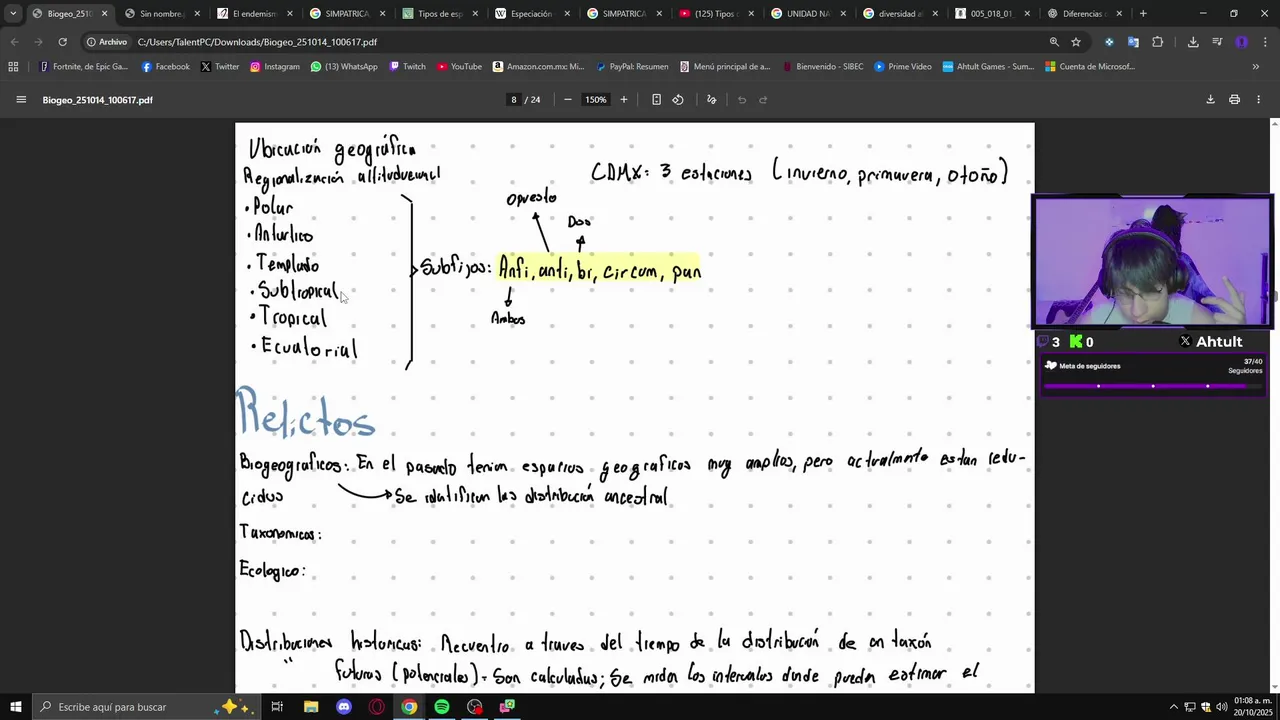 Biogeo_2510
Sin nombre
El endemism
SIMPATRICA
Tipos de esp
Especiación
SIMPATRICA
(125) Tipos
UNIDAD NA
diversidad al
005_018_01_
Diferencias
Archivo C:/Users/TalentPC/Downloads/Biogeo_251014_100617.pdf
Fortnite, de Epic Ga... Facebook Twitter Instagram (13) WhatsApp Twitch YouTube Amazon.com.mx: Mi... PayPal: Resumen Menú principal de a... Bienvenido - SIBEC Prime Video Ahtult Games - Sum... Cuenta de Microsof...
Biogeo_251014_100617.pdf 8 / 24 150%
Ubicación geográfica
Regionalización altitudennal
CDMX: 3 estaciones (invierno, primavera, otoño)
• Polar
• Antartico
• Templado
• Subtropical
• Tropical
• Ecuatorial
Opuesto
Dos
Subfijos: Anfi, anti, bi, circum, pan
Ambos
Relictos
Biogeograficos: En el pasado tenian espacios geograficos muy amplios, pero actualmente estan redu-
cidos
Se identifican las distribución ancestral
Taxonomicos:
Ecologico:
Distribuciones historicas: Recuentro a traves del tiempo de la distribución de un taxón
" futuras (potenciales) - Son calculadas; Se miden los intervalos donde puedan estimar el
3 0 Ahtult
Meta de seguidores 37/40
Seguidores
Escribe aquí para buscar
01:08 a. m.
20/10/2025